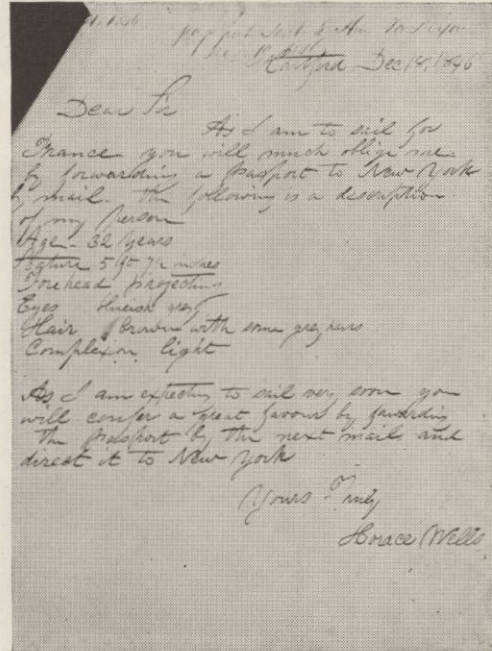 Hartford Dec 18, 1846
Dear Sir
As I am to sail for
France you will much oblige me
by forwarding a passport to New York
by mail. The following is a description
of my person
Age - 32 years
Stature 5 ft 7½ inches
Forehead projecting
Eyes blueish grey
Hair Brown with some grey hairs
Complexon light
As I am expecting to sail very soon you
will confer a great favour by fawarding
the passport by the next mail and
direct it to New York
Yours Truly
Horace Wells